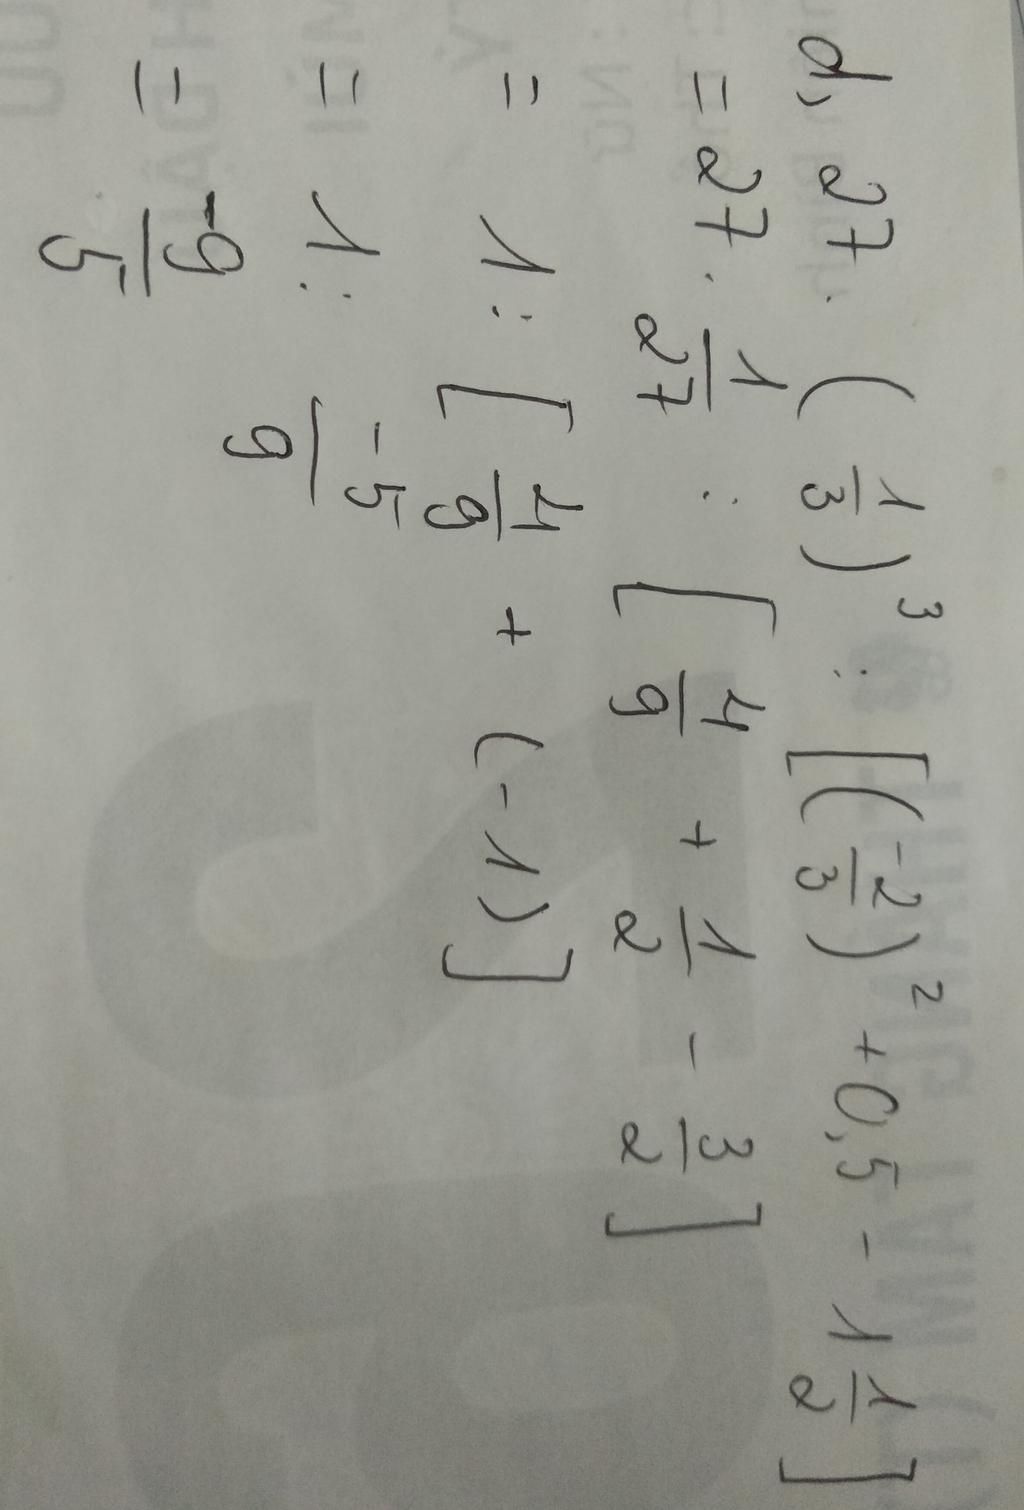 d, 27 . (1/3)³ : [(-2/3)² + 0,5 - 1 1/2]
= 27 . 1/27 : [4/9 + 1/2 - 3/2]
= 1 : [4/9 + (-1)]
= 1 : -5/9
= -9/5